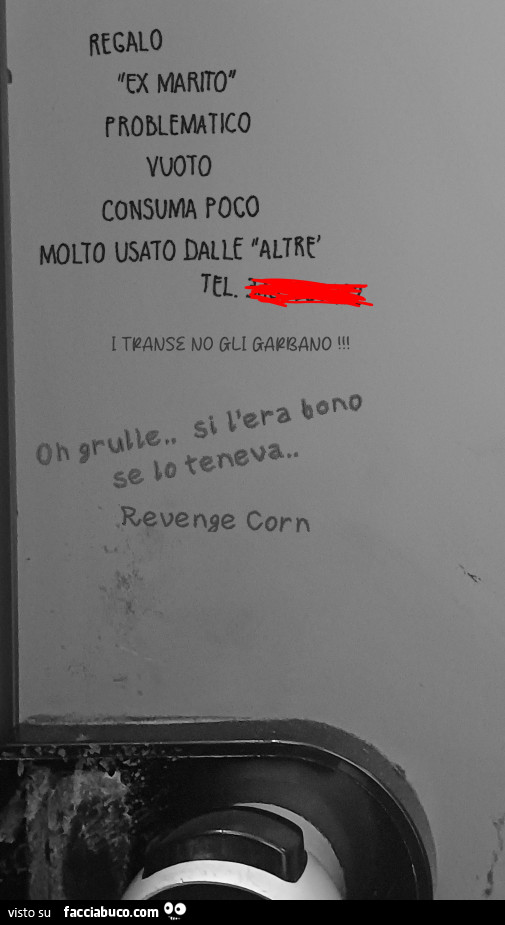 REGALO
"EX MARITO"
PROBLEMATICO
VUOTO
CONSUMA POCO
MOLTO USATO DALLE "ALTRE'
TEL.
I TRANSE NO GLI GARBANO !!!
Oh grulle.. si l'era bono
se lo teneva..
Revenge Corn
visto su facciabuco.com